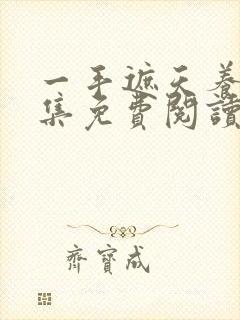 一手遮天養
集免費閱讀
齊寶成